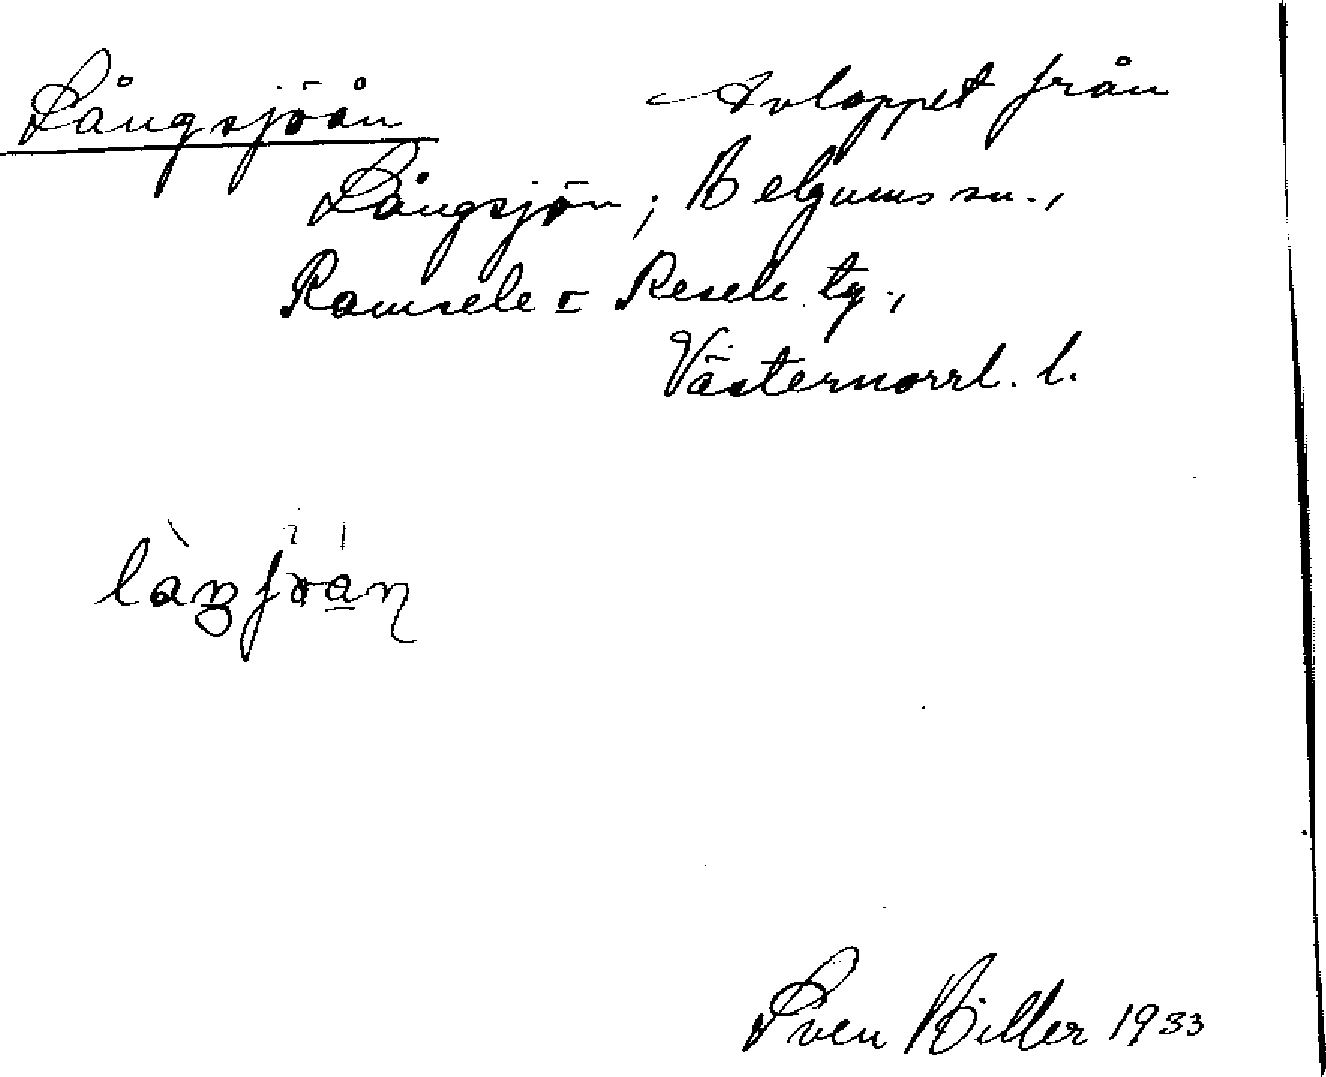 Långsjöån Avloppet från
Långsjön; Helgums sn.,
Ramsele o Resele tg.,
Västernorrl. l.
Sven Hiller 1933